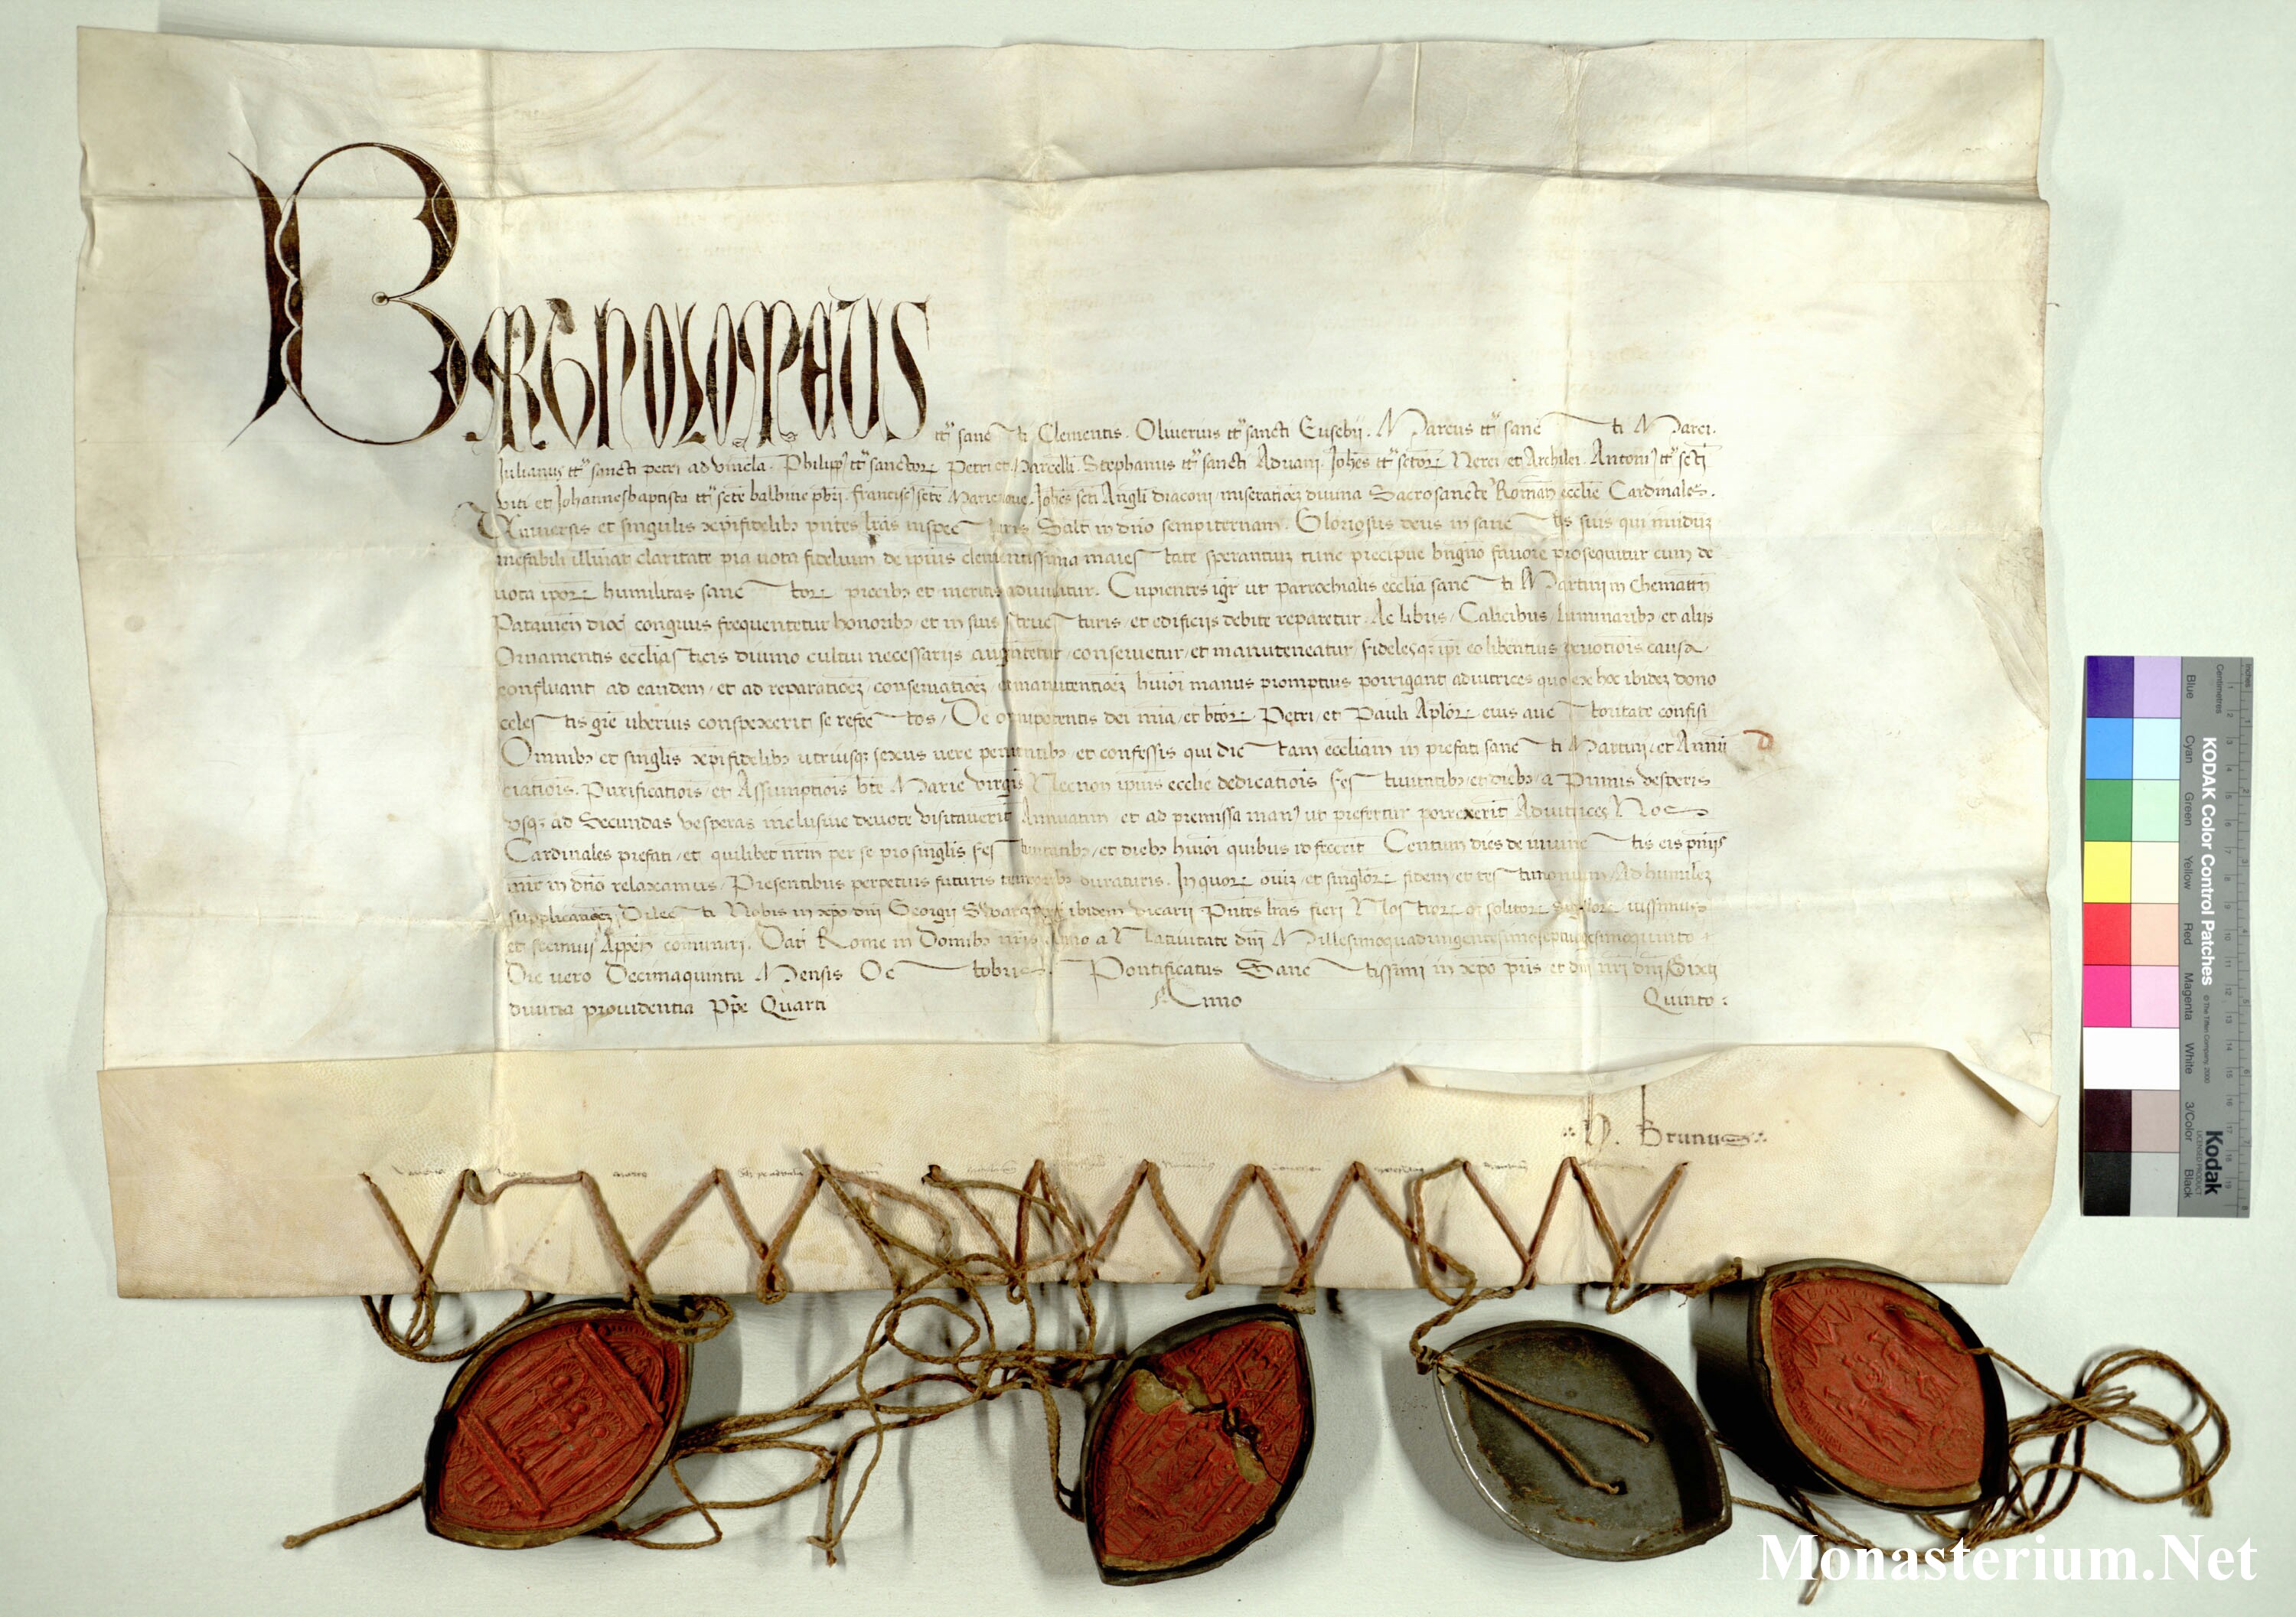 BARTHOLOMEUS
tt͞ sancti Clementis. Oliuerius tt͞ sancti Eusebij. Marcus tt͞ sancti Marci.
Iulianus tt͞ sancti petri ad vincla. Philippꝰ tt͞ sanctoꝝ Petri et Marcelli. Stephanus tt͞ sancti Adriani. Joħes tt͞ sctoꝝ Nerei et Archilei. Antoniꝰ tt͞ scti
viti et Johannesbaptista tt͞ scte balbine pbr̃i. franciscꝰ scte Marie noue. Joħes scti Angli diaconi miseratioe diuina Sacrosancte Roman̄ ecclie Cardinales.
Uniuersis et singulis xp̄ifidelibꝫ p̄ntes lr̃as inspecturis Salt̄ in dn̄o sempiternam. Gloriosus deus in sanctis suis qui mūdū
inefabili illuiat claritate pia uota fidelium de ipius clementissima maiestate sperantium tunc precipue bn̄gno fauore prosequitur cum de
uota ipoꝝ humilitas sanctoꝝ precibꝫ et meritis adiuuatur. Cupientes igr̄ ut parrochialis ecclia sancti Martini in Chematn̄
Patauien̄ dioc̄ congruis frequentetur honoribꝫ et in suis structuris et edificiis debite reparetur. Ac libris Calicibus luminaribꝫ et alijs
Ornamentis ecclīasticis diuino cultui necessarijs augmentetur conseruetur et manuteneatur fidelesqꝫ ip̄i eo libentius deuotiōis causa
confluant ad eandem et ad reparatioēꝫ conseruatioēꝫ et manutentioēꝫ huiōi manus promptius porrigant adiutrices quo ex hoc ibidēꝫ dono
celestis gr̄e uberius conspexerit se refectos. De omnipotentis dei mīa et btoꝝ Petri et Pauli Aploꝝ eius auctoritate confisi
Omnibꝫ et singlis xp̄ifidelibꝫ utriusqꝫ sexus uere penitentibꝫ et confessis qui dictam eccliam in prefati sancti Martini et Annū
ciatiōis. Purificatiōis et Assumptiōis bt̄e Marie virgīs Necnon ipius ecclie dedicatiōis festiuitatibꝫ et diebꝫ a Primis vesperis
vsqꝫ ad Secundas vesperas inclusiue deuote visitauerit Annuatim et ad premissa manꝰ ut prefertur porrexerit Adiutrices Nos
Cardinales prefati et quilibet nr̄m per se pro singlis festiuitatibꝫ et diebꝫ huiōi quibus id fecerit Centum dies de iniunctis eis pn̄ijs
mīc in dn̄o relaxamus Presentibus perpetuis futuris temporibꝫ duraturis. In quoꝝ oīuꝫ et singloꝝ fidem et testimonium Ad humileꝫ
supplicatioēꝫ Dilecti Nobis in xp̄o dn̄i Georgij ibidem vicarij Pn̄tes lr̃as fieri Nostroꝝ qꝫ solitoꝝ Sigilloꝝ iussimus
et fecimus Appen̄ comuniri. Dat̄ Rome in Domibꝫ nr̄is Anno a Natiuitate dn̄i Millesimoquadringentesimoseptuagesimoquinto
Die vero Decimaquinta Mensis Octobris. Pontificatus Sanctissimi in xp̄o pr̄is et dn̄i nr̄i dn̄i Sixti
diuina prouidentia Pp̄e Quarti Anno Quinto:
D
H. Brunus
KODAK Color Control Patches
© The Tiffen Company, 2000
Kodak
LICENSED PRODUCT
Inches
Centimetres
Blue
Cyan
Green
Yellow
Red
Magenta
White
3/Color
Black
Monasterium.Net